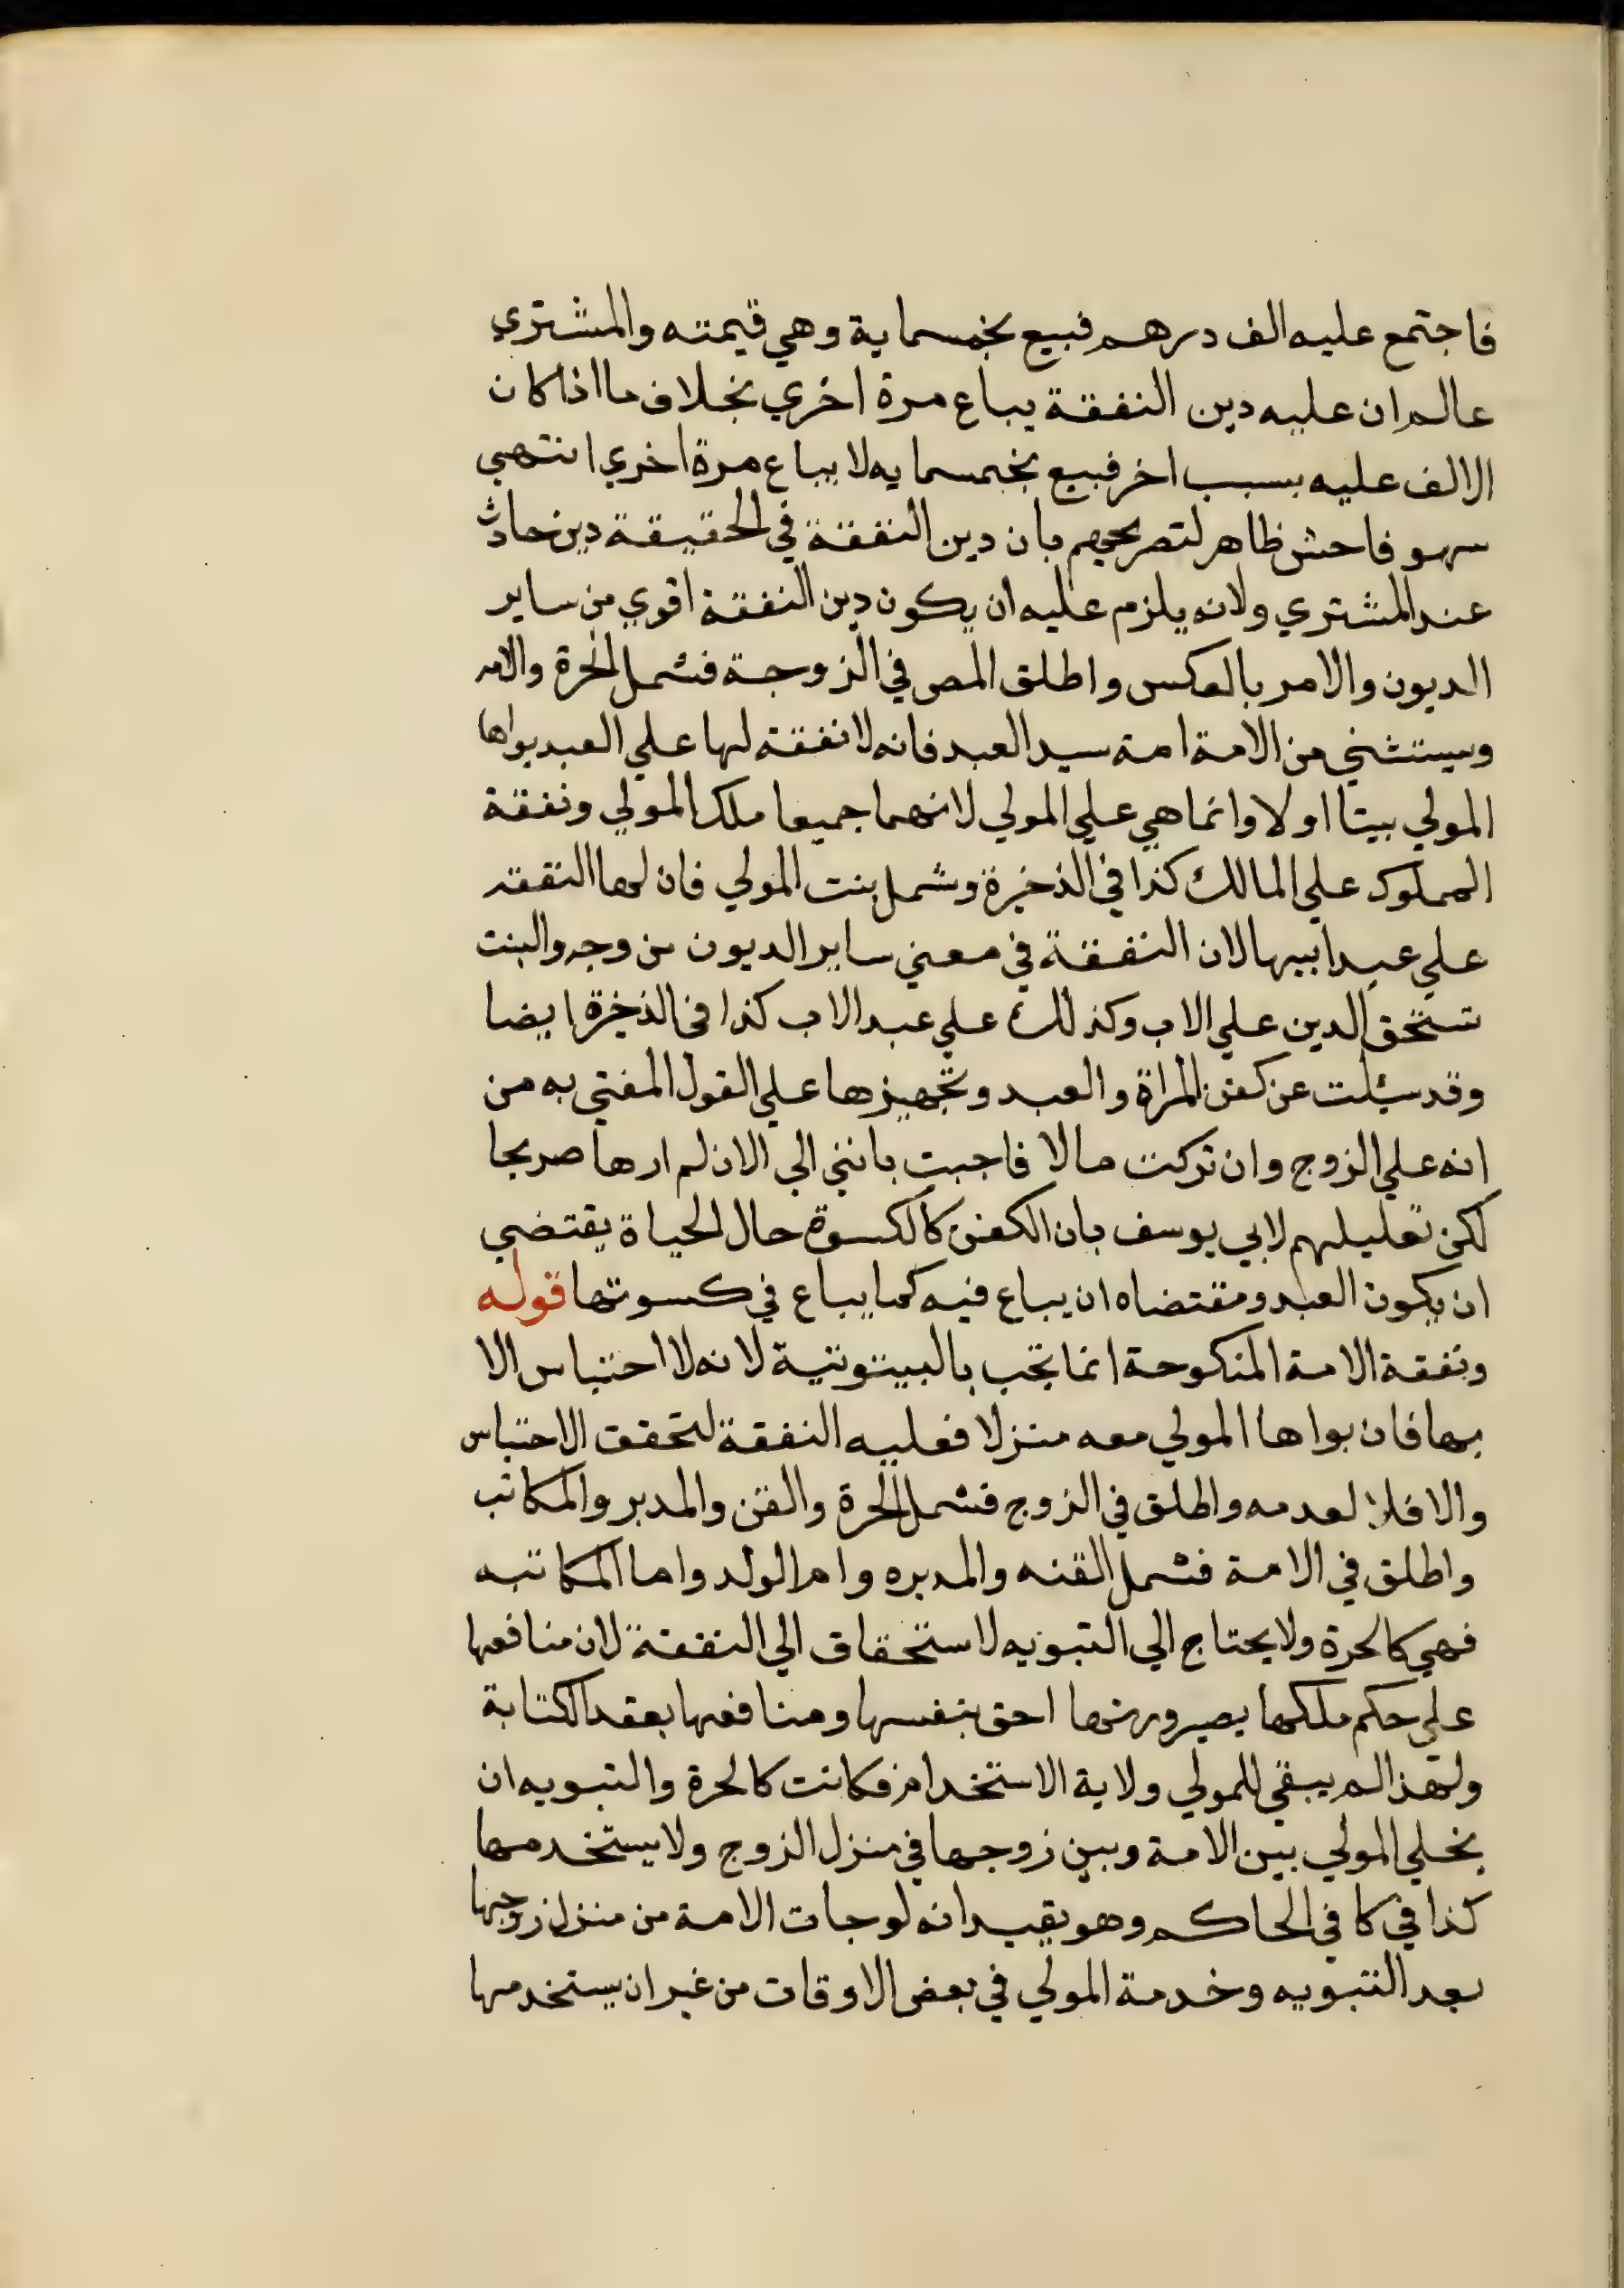 فاجتمع عليه الف درهم فبيع بخمسماية وهي قيمته والمشتري
عالم ان عليه دين النفقة يباع مرة اخري بخلاف ما اذا كان
الالف عليه بسبب اخر فبيع بخمسمايه لا يباع مرة اخري انتهي
سهو فاحش ظاهر لتصريحهم بان دين النفقة في الحقيقة دين حادث
عند المشتري ولانه يلزم عليه ان يكون دين النفقة اقوي من ساير
الديون والامر بالعكس واطلق المص في الزوجة فشمل الحرة والامه
ويستثني من الامة امة سيد العبد فانه لا نفقة لها علي العبد بواها
المولي بيتا اولا وانما هي علي المولي لانهما جميعا ملك المولي ونفقة
المملوك علي المالك كذا في الذخيرة وشمل بنت المولي فان لها النفقه
علي عبد ابيها لان النفقة في معني ساير الديون من وجه والبنت
تستحق الدين علي الاب وكذلك علي عبد الاب كذا في الذخيرة ايضا
وقد سئلت عن كفن المراة والعبد وتجهيزها علي القول المفتي به من
انه علي الزوج وان تركت مالا فاجبت بانني الي الان لم ارها صريحا
لكن تعليلهم لابي يوسف بان الكفن كالكسوة حال الحياة يقتضي
ان يكون العبد ومقتضاه ان يباع فيه كما يباع في كسوتها قوله
ونفقة الامة المنكوحة انما تجب بالبيتوتية لانه لا احتباس الا
بها فان بواها المولي معه منزلا فعليه النفقة لتحقق الاحتباس
والا فلا لعدمه واطلق في الزوج فشمل الحرة والقن والمدبر والمكاتب
واطلق في الامة فشمل القنه والمدبره وام الولد واما المكاتبه
فهي كالحرة ولا يحتاج الي التبويه لاستحقاق الي النفقة لان منافعها
علي حكم ملكها بصيرورتها احق بنفسها ومنافعها بعقد الكتابة
ولهذا لم يبقي للمولي ولاية الاستخدام فكانت كالحرة والتبويه ان
يخلي المولي بين الامة وبين زوجها في منزل الزوج ولا يستخدمها
كذا في كافي الحاكم وهو يفيد انه لو جات الامة من منزل زوجها
بعد التبويه وخدمة المولي في بعض الاوقات من غير ان يستخدمها